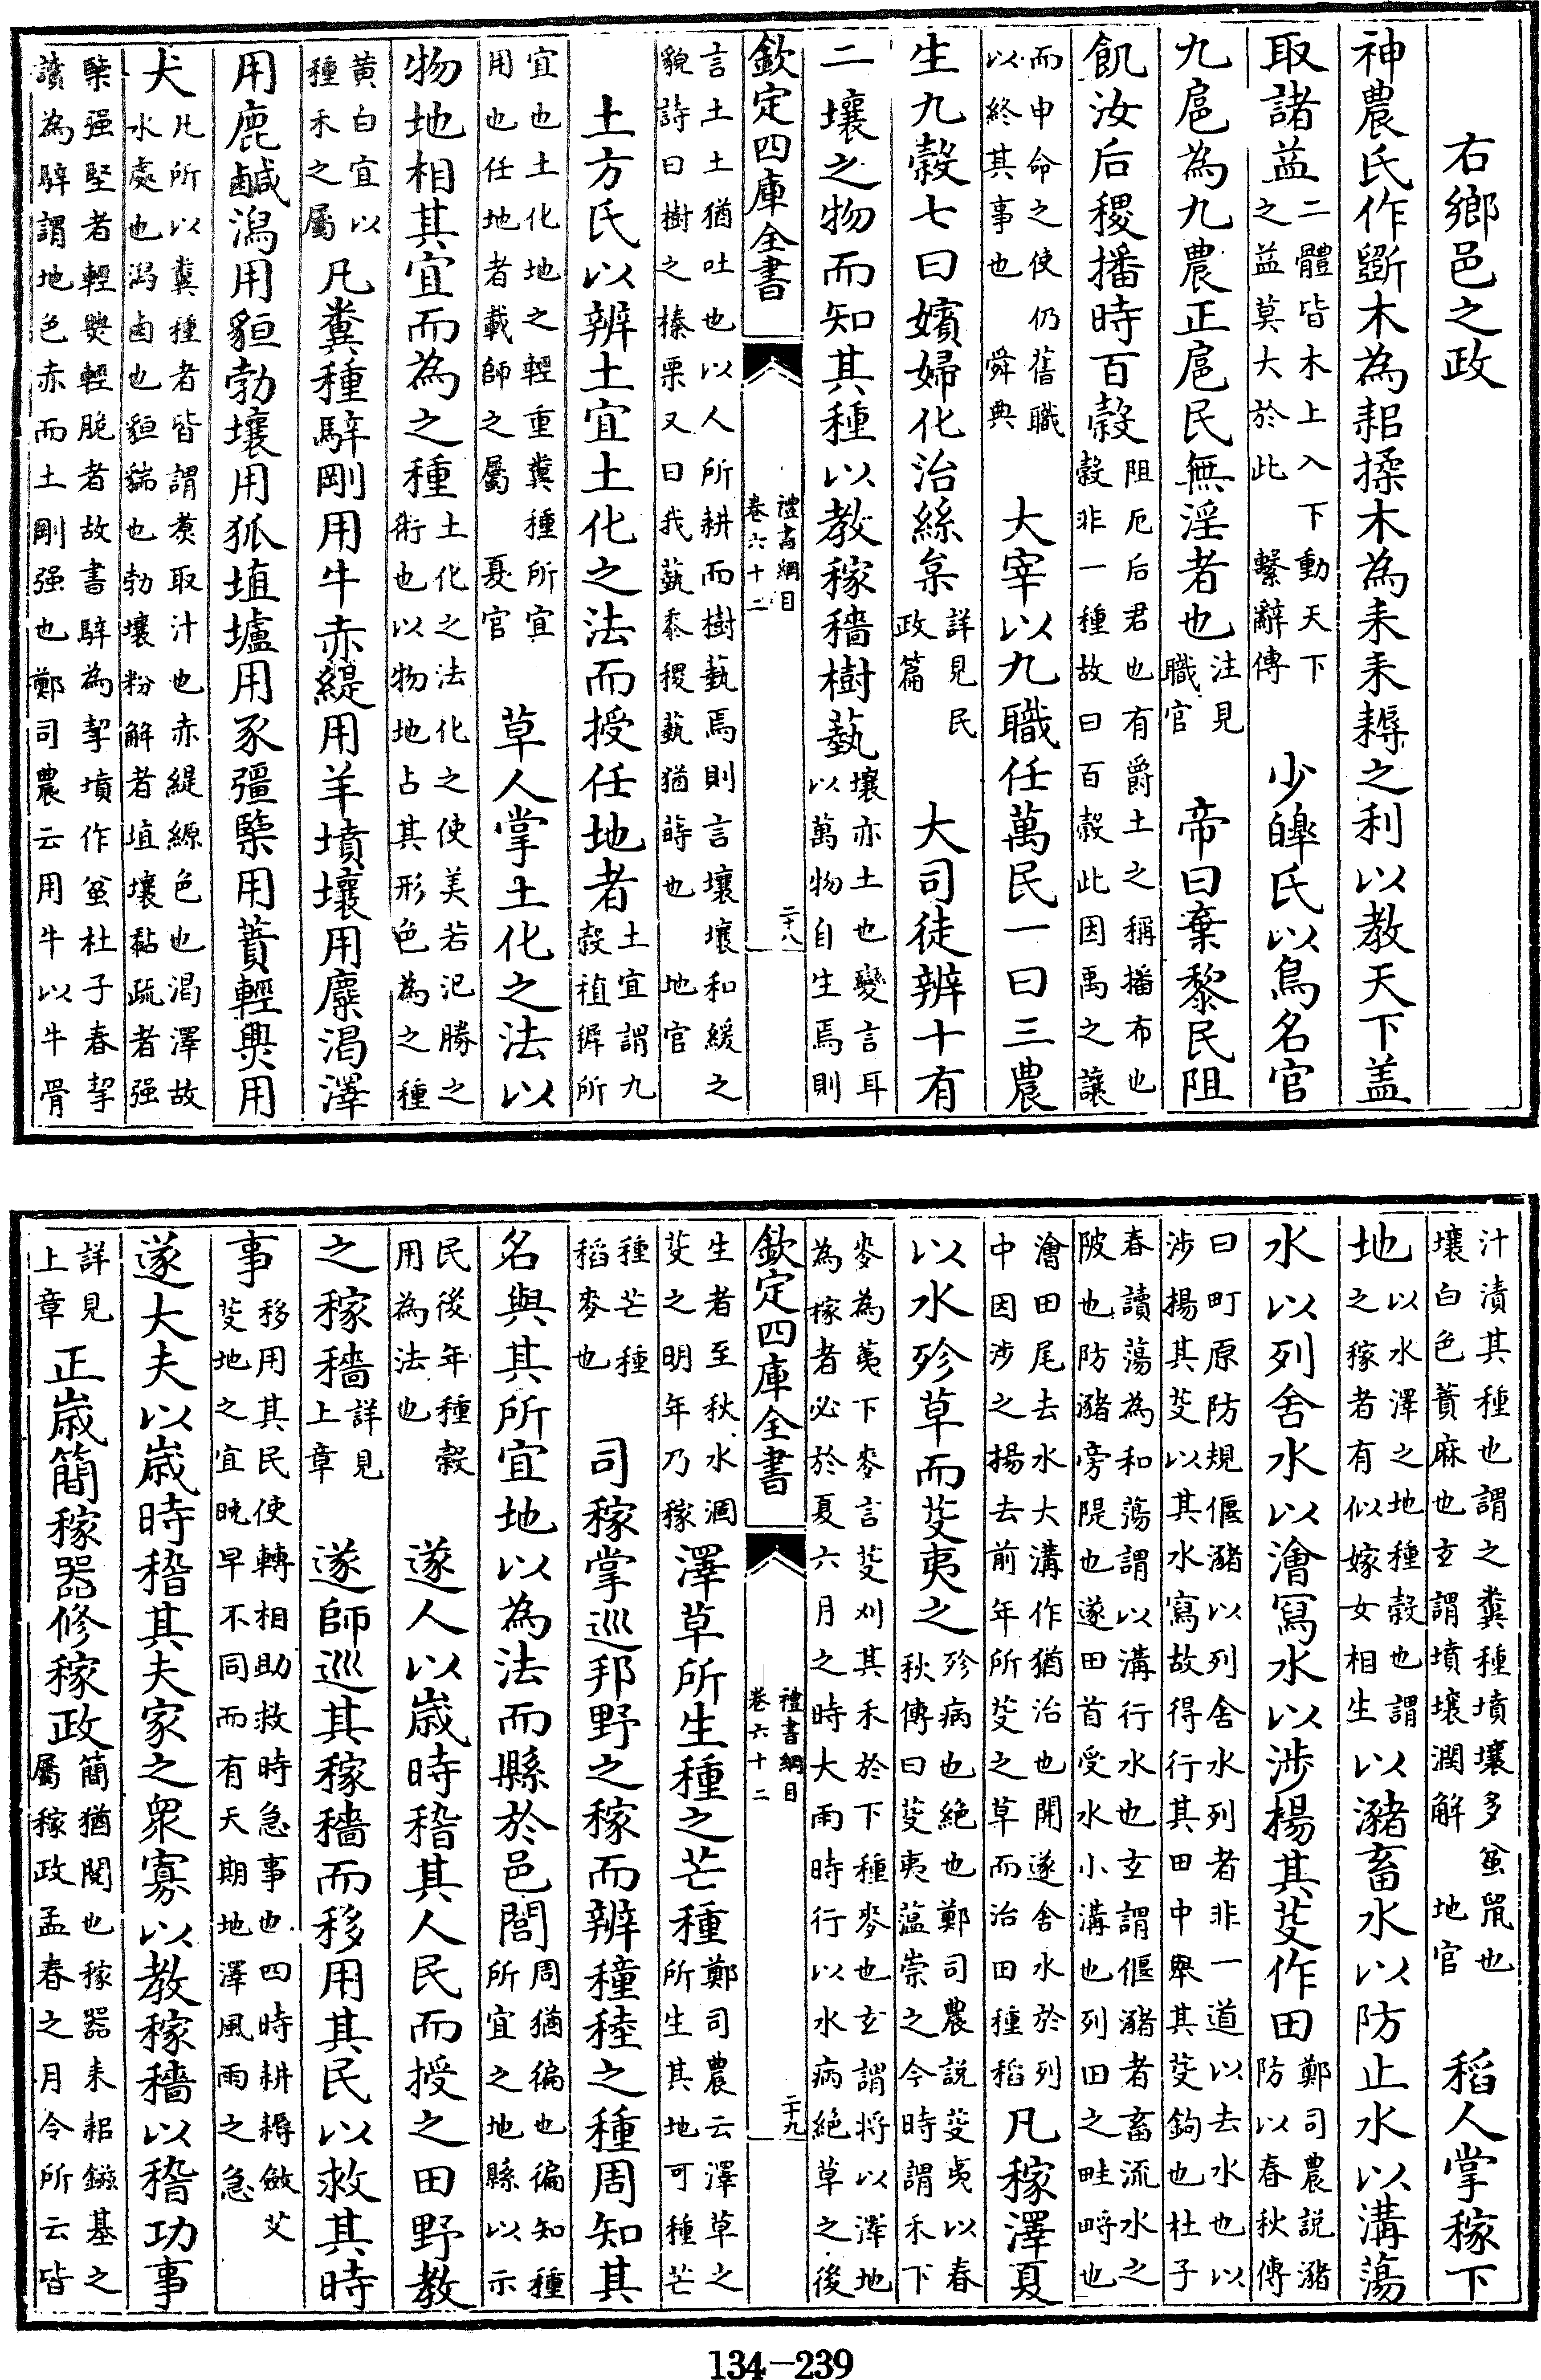 右鄉邑之政
神農氏作斲木為耜揉木為耒耒耨之利以教天下盖
取諸益二體皆木上入下動天下之益莫大於此 繫辭傳 少皥氏以鳥名官
九扈為九農正扈民無淫者也注見職官 帝曰棄黎民阻
飢汝后稷播時百穀阻厄后君也有爵土之稱播布也穀非一種故曰百穀此因禹之讓
而申命之使仍舊職以終其事也 舜典 大宰以九職任萬民一曰三農
生九穀七曰嬪婦化治絲枲詳見民政篇 大司徒辨十有
二壤之物而知其種以教稼穡樹蓺壤亦土也變言耳以萬物自生焉則
欽定四庫全書 禮書綱目 卷六十二 二十八
言土土猶吐也以人所耕而樹蓺焉則言壤壤和緩之貌詩曰樹之榛栗又曰我蓺黍稷蓺猶蒔也 地官
土方氏以辨土宜土化之法而授任地者土宜謂九穀稙穉所
宜也土化地之輕重糞種所宜用也任地者載師之屬 夏官 草人掌土化之法以
物地相其宜而為之種土化之法化之使美若氾勝之術也以物地占其形色為之種
黃白宜以種禾之屬 凡糞種騂剛用牛赤緹用羊墳壤用麋渴澤
用鹿鹹潟用貆勃壤用狐埴壚用豕彊㯺用蕡輕㷼用
犬凡所以糞種者皆謂煑取汁也赤緹縓色也渴澤故水處也潟鹵也貆貒也勃壤粉解者埴壤黏疏者强
㯺强堅者輕㷼輕脆者故書騂為挈墳作蚠杜子春挈讀為騂謂地色赤而土剛强也鄭司農云用牛以牛骨
汁漬其種也謂之糞種墳壤多蚠鼠也壤白色蕡麻也玄謂墳壤潤解 地官 稻人掌稼下
地以水澤之地種穀也謂之稼者有似嫁女相生以瀦畜水以防止水以溝蕩
水以列舍水以澮寫水以涉揚其芟作田鄭司農説瀦防以春秋傳
曰町原防規偃瀦以列舍水列者非一道以去水也以涉揚其芟以其水寫故得行其田中舉其芟鉤也杜子
春讀蕩為和蕩謂以溝行水也玄謂偃瀦者畜流水之陂也防瀦旁隄也遂田首受水小溝也列田之畦㽟也
澮田尾去水大溝作猶治也開遂舍水於列中因涉之揚去前年所芟之草而治田種稻凡稼澤夏
以水殄草而芟夷之殄病也絶也鄭司農説芟夷以春秋傳曰芟夷蕰崇之今時謂禾下
麥為荑下麥言芟刈其禾於下種麥也玄謂將以澤地為稼者必於夏六月之時大雨時行以水病絶草之後
欽定四庫全書 禮書綱目 卷六十二 二十九
生者至秋水涸芟之明年乃稼 澤草所生種之芒種鄭司農云澤草之所生其地可種芒
種芒種稻麥也 司稼掌巡邦野之稼而辨穜稑之種周知其
名與其所宜地以為法而縣於邑閭周猶徧也徧知種所宜之地縣以示
民後年種穀用為法也 遂人以歲時稽其人民而授之田野教
之稼穡詳見上章 遂師巡其稼穡而移用其民以救其時
事移用其民使轉相助救時急事也四時耕耨斂艾芟地之宜晚早不同而有天期地澤風雨之急
遂大夫以歲時稽其夫家之衆寡以教稼穡以稽功事
詳見上章 正歲簡稼器修稼政簡猶閱也稼器耒耜鎡基之屬稼政孟春之月令所云皆
134-239